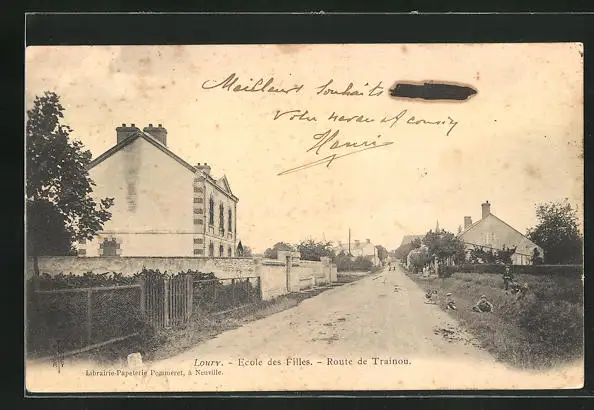 Meilleurs souhaits
Votre neveu et cousin
Henri
LOURY. - ECOLE DES FILLES. - ROUTE DE TRAINOU.
Librairie-Papeterie Pommeret, à Neuville.